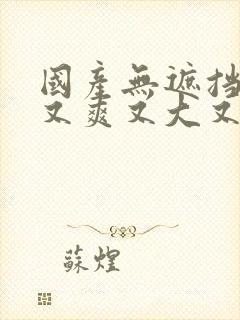 國產無遮挡
又爽又大又
蘇煌